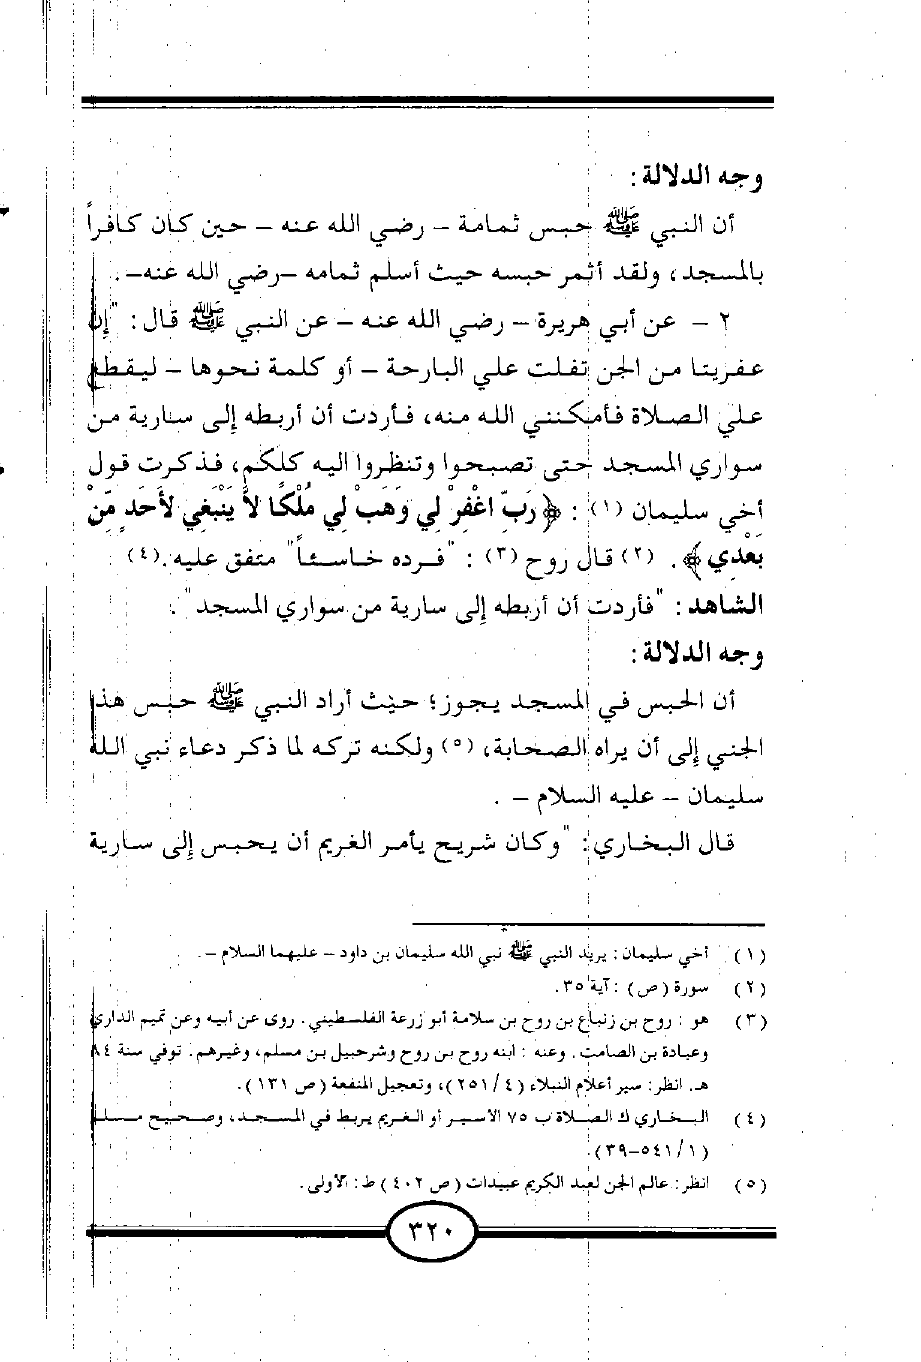 وجه الدلالة :
أن النبي ﷺ حبس ثمامة – رضي الله عنه – حين كان كافراً
بالمسجد، ولقد أثمر حبسه حيث أسلم ثمامه –رضي الله عنه– .
٢ – عن أبي هريرة – رضي الله عنه – عن النبي ﷺ قال : "إن
عفريتا من الجن تفلت علي البارحة – أو كلمة نحوها – ليقطع
علي الصلاة فأمكنني الله منه، فأردت أن أربطه إلى سارية من
سواري المسجد حتى تصبحوا وتنظروا اليه كلكم، فذكرت قول
أخي سليمان (١) : ﴿رَبِّ اغْفِرْ لِي وَهَبْ لِي مُلْكًا لاَّ يَنْبَغِي لأَحَدٍ مِّنْ
بَعْدِي﴾ . (٢) قال روح (٣) : "فرده خاسئاً" متفق عليه .(٤)
الشاهد : "فأردت أن أربطه إلى سارية من سواري المسجد" .
وجه الدلالة :
أن الحبس في المسجد يجوز؛ حيث أراد النبي ﷺ حبس هذا
الجني إلى أن يراه الصحابة، (٥) ولكنه تركه لما ذكر دعاء نبي الله
سليمان – عليه السلام – .
قال البخاري : "وكان شريح يأمر الغريم أن يحبس إلى سارية
(١) أخي سليمان : يريد النبي ﷺ نبي الله سليمان بن داود – عليهما السلام –.
(٢) سورة (ص) : آية ٣٥.
(٣) هو : روح بن زنباع بن روح بن سلامة أبو زرعة الفلسطيني. روى عن أبيه وعن تميم الداري
وعبادة بن الصامت . وعنه : ابنه روح بن روح وشرحبيل بن مسلم، وغيرهم . توفي سنة ٨٤
هـ. انظر: سير أعلام النبلاء (٤/ ٢٥١)، وتعجيل المنفعة (ص ١٣١).
(٤) البخاري ك الصلاة ب ٧٥ الاسير أو الغريم يربط في المسجد، وصحيح مسلم
(١/ ٥٤١–٣٩).
(٥) انظر: عالم الجن لعبد الكريم عبيدات (ص ٤٠٢) ط: الأولى.
٣٢٠